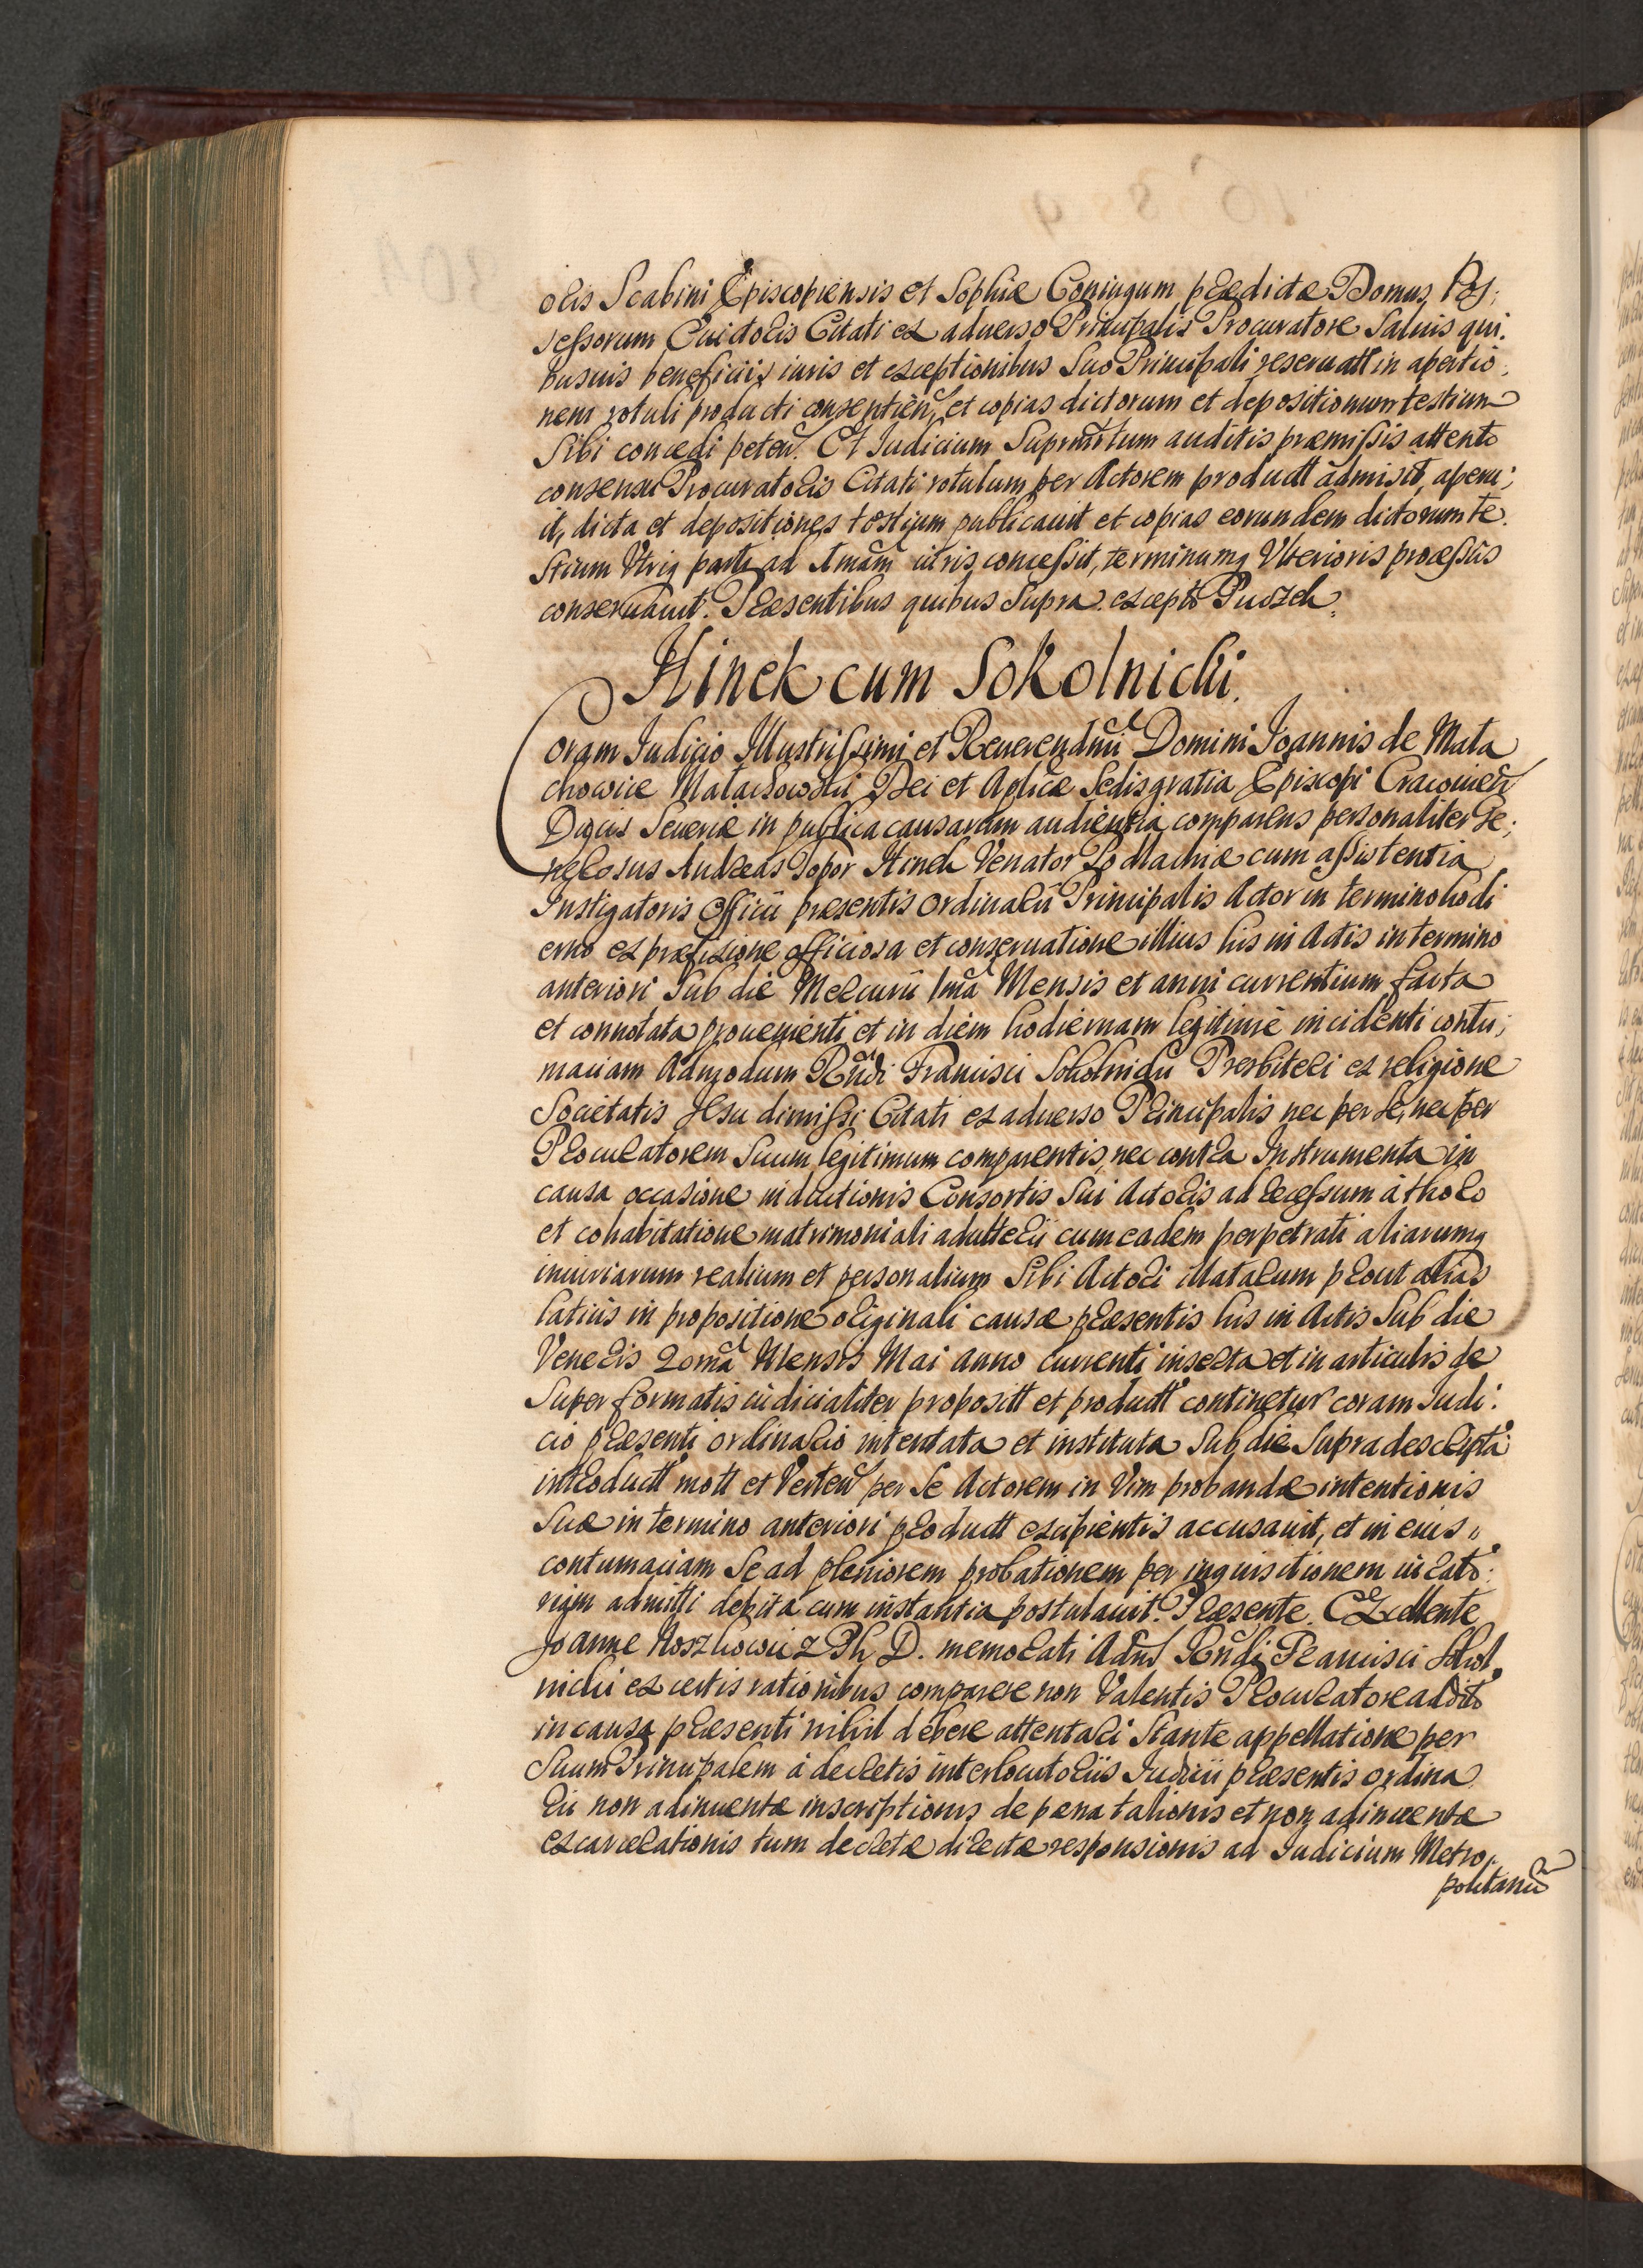 oris Scabini Episcopiensis et Sophiæ Coniugum prædictæ Domus Pos:
sessorum Euictoris Citati ex aduerso Principalis Procuratore Saluis qui:
busuis beneficiis iuris et exceptionibus Suo Principali reseruatt in apertio:
nem rotuli producti consentień, et copias dictorum et depositionum testium
Sibi concedi peteń. Et Iudicium Supra auditis præmissis attento
consensu Procuratoris Citati rotulum per Actorem productt admisit, aperu:
it, dicta et depositiones testium publicauit et copias eorundem dictorum te:
stium Vtriq parti ad mam iuris concessit, terminumq Vlterioris processus
conseruauit. Præsentibus quibus Supra. excepto Puczek.
Hinek cum Sokolnicki.
Coram Iudicio Illustrissimi et Reuerendmi Domini Ioannis de Mala
chowice Malachowski Dei et Aplicæ Sedis gratia Episcopi Cracouień
Ducis Seueriæ in publica causarum audientia comparens personaliter Ge:
nerosus Andreas Topor Hinek Venator Podlachiæ cum assistentia
Instigatoris Officii præsentis Ordinarii Principalis Actor in termino hodi
erno ex præfixione officiosa et conseruatione illius his in Actis in termino
anteriori Sub die Mercurii 1ma Mensis et anni currentium facta
et connotata proueniente et in diem hodiernam legitime incidenti contu:
maciam Admodum Rndi Francisci Sokolnicki Presbiteri ex religione
Societatis Jesu dimissi Citati ex aduerso Principalis nec per se, nec per
Procuratorem Suum legitimum comparentis, nec contra Instrumenta in
causa occasione inductionis Consortis Sui Actoris ad recessum à thoro
et cohabitatione matrimoniali adulterii cum eadem perpetrati aliarumq
iniuriarum realium et personalium Sibi Actori illatarum prout alias
latius in propositione originali causæ præsentis his in Actis Sub die
Veneris 20ma Mensis Mai anno currenti inserta et in articulis de
Super formatis iudicialiter propositt et productt continetur coram Iudi:
cio præsenti ordinario intentata et instituta Sub die Supradescripta
introductt mott et Verteń per Se Actorem in Vim probandæ intentionis
Suæ in termino anteriori productt excipientis accusauit, et in eius
contumaciam Se ad pleniorem probationem per inquisitionem iurato:
riam admitti debita cum instantia postulauit. Præsente Excellente
Joanne Roszkowicz Ph D. memorati Adm Rndi Francisci Sokol
nicki ex certis rationibus comparere non Valentis Procuratore addito
in causa præsenti nihil debere attentari Stante appellatione per
Suum Principalem à decretis interlocutoriis Iudicii præsentis ordina
rii non adinuentæ inscriptionis de pæna talionis et non adinuentæ
excarcerationis tum decretæ directæ responsionis ad Iudicium Metro
politanũ